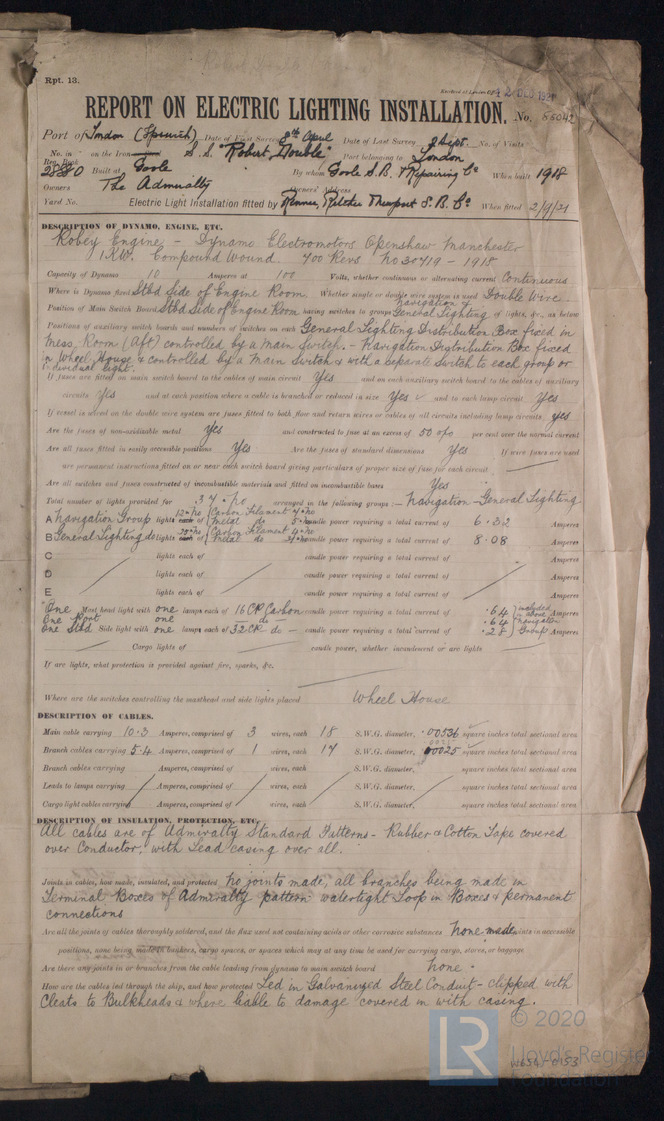 Rpt. 13.
REPORT ON ELECTRIC LIGHTING INSTALLATION. No. 85042
Port of London (Ipswich) Date of First Survey 8th April Date of Last Survey 2 Sept. No. of Visits
No. in Reg. Book on the Iron S.S. "Robert Double" Port belonging to London
28880 Built at Goole By whom Goole S.B. & Repairing Co When built 1918
Owners The Admiralty Owners' Address
Yard No. Electric Light Installation fitted by S.B. Co When fitted 2/9/21
DESCRIPTION OF DYNAMO, ENGINE, ETC.
Robey Engine - Dynamo Electromotors Openshaw Manchester
1 KW. Compound Wound 700 Revs No 30719 - 1918
Capacity of Dynamo 10 Amperes at 100 Volts, whether continuous or alternating current Continuous
Where is Dynamo fixed Stbd Side of Engine Room. Whether single or double wire system is used Double Wire
Position of Main Switch Board Stbd Side of Engine Room having switches to groups Navigation & General Lighting of lights, &c., as below
Positions of auxiliary switch boards and numbers of switches on each General Lighting Distribution Box fixed in
Mess Room (Aft) controlled by a Main Switch. - Navigation Distribution Box fixed
in Wheel House & controlled by a Main Switch & with a separate switch to each group or
individual light.
If fuses are fitted on main switch board to the cables of main circuit Yes and on each auxiliary switch board to the cables of auxiliary
circuits Yes and at each position where a cable is branched or reduced in size Yes and to each lamp circuit Yes
If vessel is wired on the double wire system are fuses fitted to both flow and return wires or cables of all circuits including lamp circuits yes
Are the fuses of non-oxidizable metal Yes and constructed to fuse at an excess of 50 o/o per cent over the normal current
Are all fuses fitted in easily accessible positions Yes Are the fuses of standard dimensions Yes If wire fuses are used
are permanent instructions fitted on or near each switch board giving particulars of proper size of fuse for each circuit
Are all switches and fuses constructed of incombustible materials and fitted on incombustible bases Yes
Total number of lights provided for 37 No arranged in the following groups :- Navigation - General Lighting
A Navigation Group lights each of Carbon Filament Metal do candle power requiring a total current of 6.32 Amperes
B General Lighting do lights each of Carbon Filament Metal do candle power requiring a total current of 8.08 Amperes
C lights each of candle power requiring a total current of Amperes
D lights each of candle power requiring a total current of Amperes
E lights each of candle power requiring a total current of Amperes
One Mast head light with one lamps each of 16 CP Carbon candle power requiring a total current of .64 included in above Amperes
One Port one do .64 navigation
One Stbd Side light with one lamps each of 32 CP do - candle power requiring a total current of .28 Group Amperes
Cargo lights of candle power, whether incandescent or arc lights
If arc lights, what protection is provided against fire, sparks, &c.
Where are the switches controlling the masthead and side lights placed Wheel House
DESCRIPTION OF CABLES.
Main cable carrying 10.3 Amperes, comprised of 3 wires, each 18 S.W.G. diameter, .00536 square inches total sectional area
Branch cables carrying 5.4 Amperes, comprised of 1 wires, each 17 S.W.G. diameter, .0025 square inches total sectional area
Branch cables carrying Amperes, comprised of wires, each S.W.G. diameter, square inches total sectional area
Leads to lamps carrying Amperes, comprised of wires, each S.W.G. diameter, square inches total sectional area
Cargo light cables carrying Amperes, comprised of wires, each S.W.G. diameter, square inches total sectional area
DESCRIPTION OF INSULATION, PROTECTION, ETC.
All cables are of Admiralty Standard Patterns - Rubber & Cotton Tape covered
over Conductor, with Lead casing over all.
Joints in cables, how made, insulated, and protected No joints made, all branches being made in
Terminal Boxes of Admiralty pattern watertight Loop in Boxes & permanent
connections
Are all the joints of cables thoroughly soldered, and the flux used not containing acids or other corrosive substances None made joints in accessible
positions, none being made in bunkers, cargo spaces, or spaces which may at any time be used for carrying cargo, stores, or baggage
Are there any joints in or branches from the cable leading from dynamo to main switch board None.
How are the cables led through the ship, and how protected Led in Galvanized Steel Conduit - clipped with
Cleats to Bulkheads & where liable to damage covered in with casing.
LR © 2020
Lloyd's Register
Foundation
W654-0153